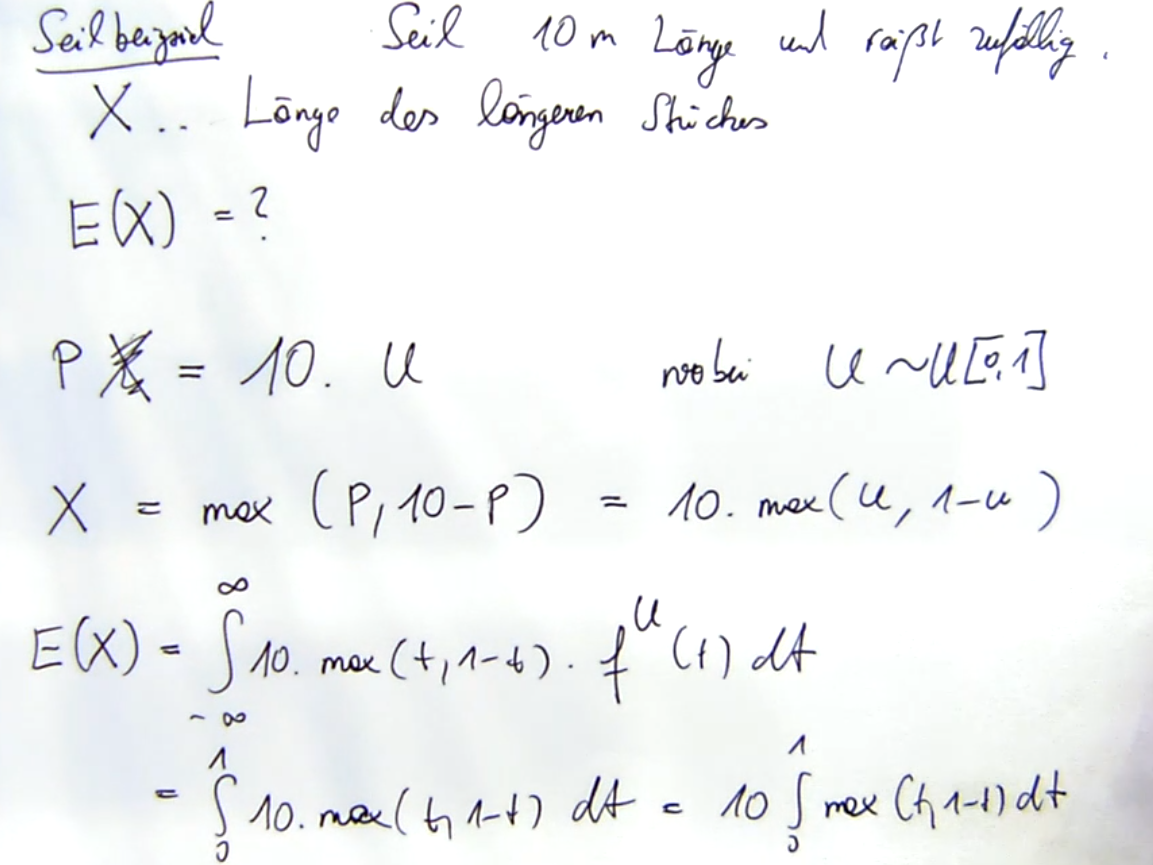 Seilbeispiel Seil 10 m Länge und reißt zufällig.
X .. Länge des längeren Stückes
E(X) = ?
P = 10. U wobei U ~ U[0,1]
X = max (P, 10-P) = 10. max(U, 1-U)
E(X) = ∫_{-∞}^{∞} 10. max(t, 1-t) . f^U (t) dt
= ∫_0^1 10. max(t, 1-t) dt = 10 ∫_0^1 max (t, 1-t) dt